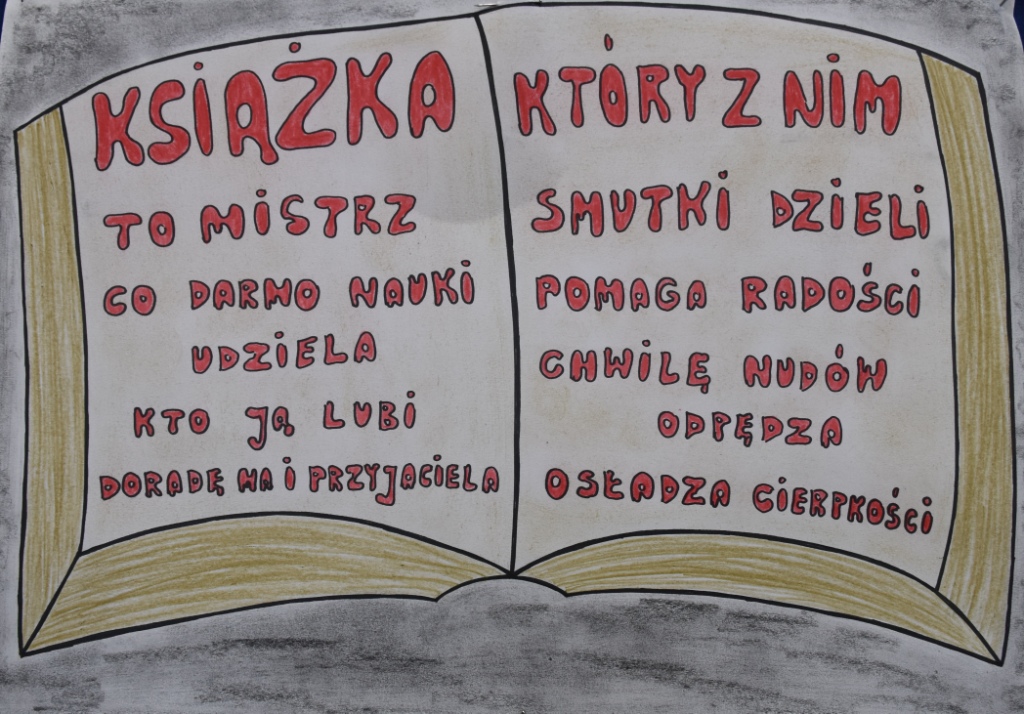 KSIĄŻKA
TO MISTRZ
CO DARMO NAUKI
UDZIELA
KTO JĄ LUBI
DORADĘ MA I PRZYJACIELA
KTÓRY Z NIM
SMUTKI DZIELI
POMAGA RADOŚCI
CHWILĘ NUDÓW
ODPĘDZA
OSŁADZA CIERPKOŚCI